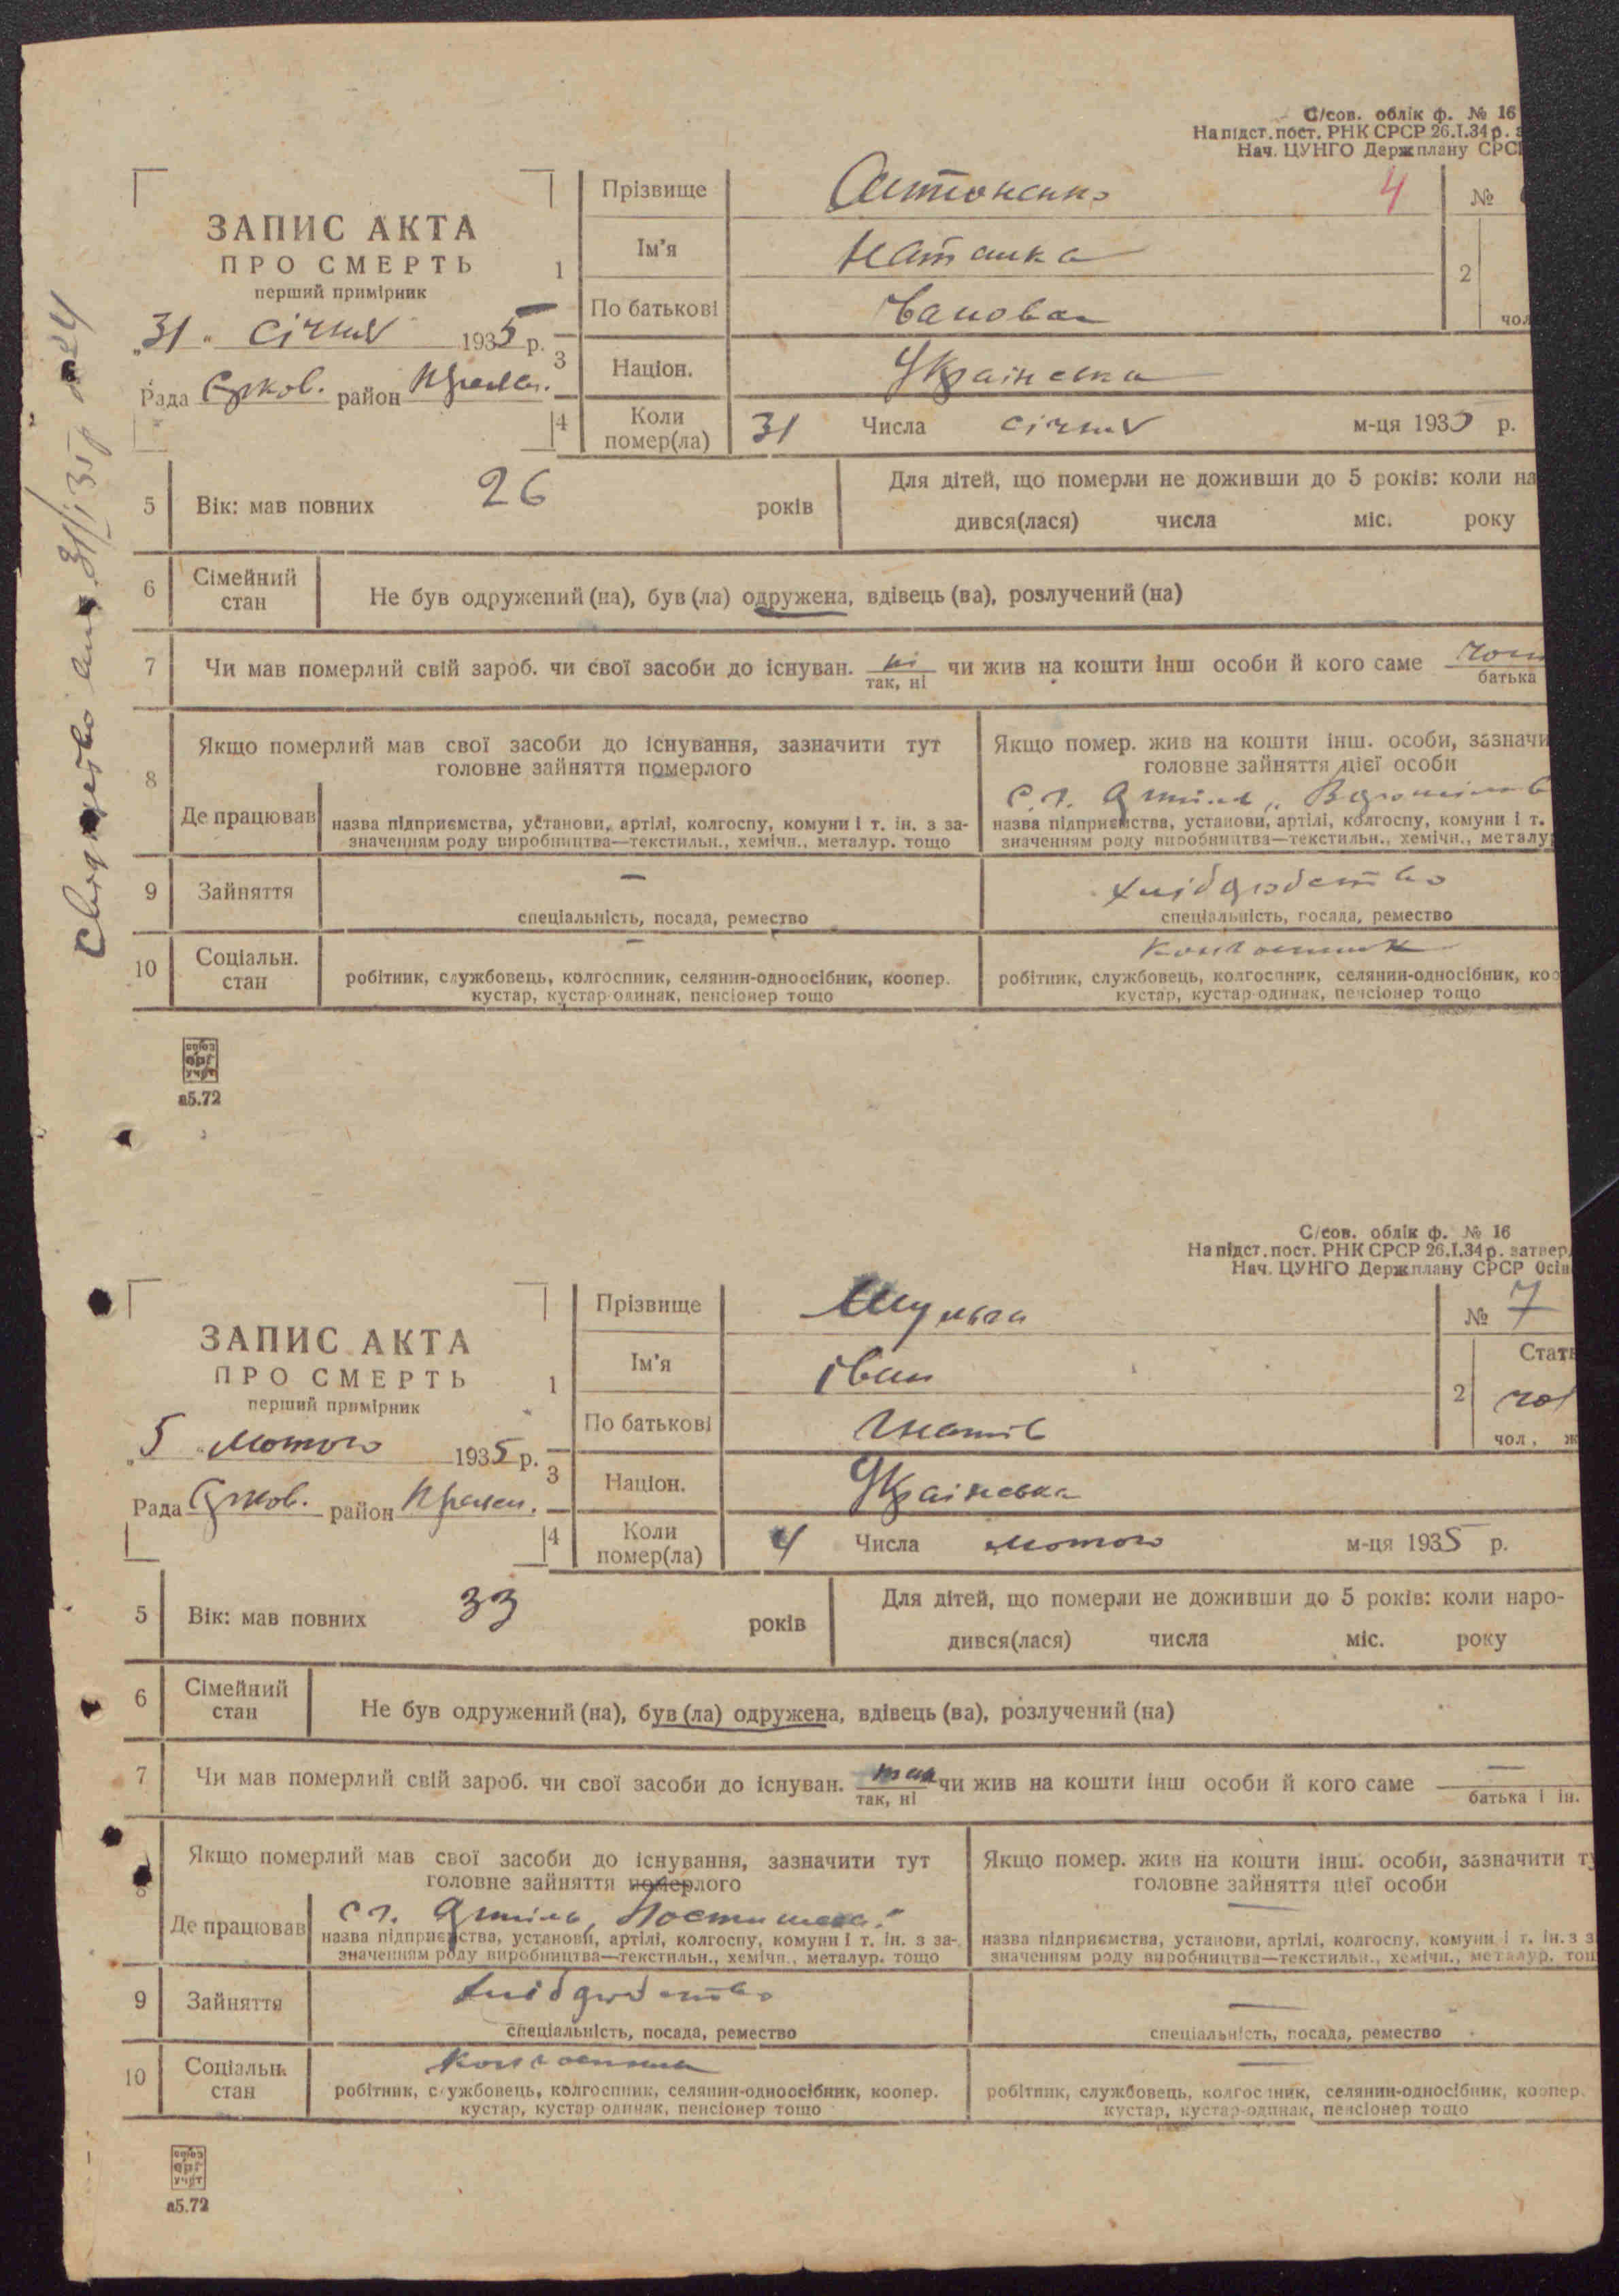 С/сов. облік ф. № 16
На підст. пост. РНК СРСР 26.I.34 р. з
Нач. ЦУНГО Держплану СРСР
ЗАПИС АКТА
ПРО СМЕРТЬ
перший примірник
„31" січня 1935 р.
Рада район
1 Прізвище Антоненко 4 №
Ім'я Наталка 2
По батькові чол
3 Націон. Українська
4 Коли помер(ла) 31 Числа січня м-ця 1935 р.
5 Вік: мав повних 26 років
Для дітей, що померли не доживши до 5 років: коли на
дився(лася) числа міс. року
6 Сімейний стан Не був одружений (на), був (ла) одружена, вдівець (ва), розлучений (на)
7 Чи мав померлий свій зароб. чи свої засоби до існуван. ні чи жив на кошти інш особи й кого саме
так, ні батька
8 Якщо померлий мав свої засоби до існування, зазначити тут
головне зайняття померлого
Якщо помер. жив на кошти інш. особи, зазначи
головне зайняття цієї особи
Де працював
с. г. Артіль „
назва підприємства, установи, артілі, колгоспу, комуни і т. ін. з за-
значенням роду виробництва—текстильн., хемічн., металур. тощо
назва підприємства, установи, артілі, колгоспу, комуни і т.
значенням роду виробництва—текстильн., хемічн., металур
9 Зайняття — хліборобство
спеціальність, посада, ремество спеціальність, посада, ремество
10 Соціальн. стан — колгоспник
робітник, службовець, колгоспник, селянин-одноосібник, коопер.
кустар, кустар-одинак, пенсіонер тощо
робітник, службовець, колгоспник, селянин-односібник, коо
кустар, кустар-одинак, пенсіонер тощо
союз
орг
учет
а5.72
С/сов. облік ф. № 16
На підст. пост. РНК СРСР 26.I.34 р. затвер
Нач. ЦУНГО Держплану СРСР Осін
ЗАПИС АКТА
ПРО СМЕРТЬ
перший примірник
„5" лютого 1935 р.
Рада район
1 Прізвище Шульга № 7
Ім'я Іван 2 Стать
По батькові Гнатів чол
чол. ж
3 Націон. Українська
4 Коли помер(ла) 4 Числа лютого м-ця 1935 р.
5 Вік: мав повних 33 років
Для дітей, що померли не доживши до 5 років: коли наро-
дився(лася) числа міс. року
6 Сімейний стан Не був одружений (на), був (ла) одружена, вдівець (ва), розлучений (на)
7 Чи мав померлий свій зароб. чи свої засоби до існуван. так чи жив на кошти інш особи й кого саме —
так, ні батька і ін.
8 Якщо померлий мав свої засоби до існування, зазначити тут
головне зайняття померлого
Якщо помер. жив на кошти інш. особи, зазначити ту
головне зайняття цієї особи
Де працював с г. Артіль „Постишева" —
назва підприємства, установи, артілі, колгоспу, комуни і т. ін. з за-
значенням роду виробництва—текстильн., хемічн., металур. тощо
назва підприємства, установи, артілі, колгоспу, комуни і т. ін. з з
значенням роду виробництва—текстильн., хемічн., металур. тощ
9 Зайняття хліборобство —
спеціальність, посада, ремество спеціальність, посада, ремество
10 Соціальн. стан колгоспник —
робітник, службовець, колгоспник, селянин-одноосібник, коопер.
кустар, кустар одинак, пенсіонер тощо
робітник, службовець, колгоспник, селянин-односібник, коопер.
кустар, кустар-одинак, пенсіонер тощо
союз
орг
учет
а5.72